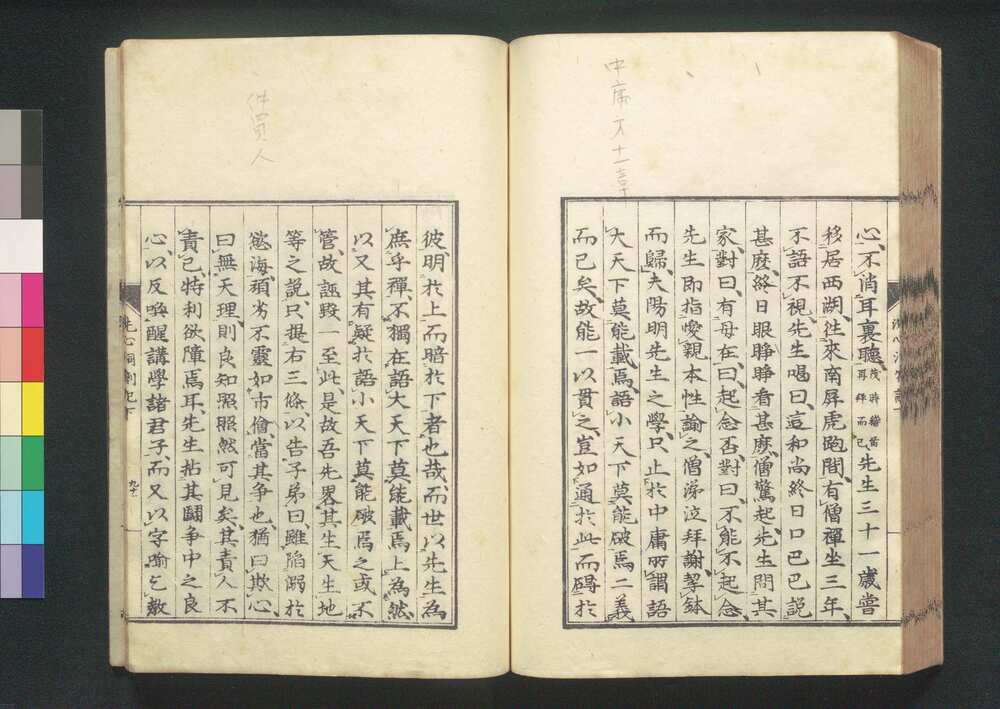 中庸 十一章
心、不消耳裏聽、茂時綴首耳拜而已、先生三十一歲嘗
移居西湖、往來南屏虎跑間、有僧禪坐三年、
不語不視、先生喝曰、這和尚終日口巴巴說
甚麽、終日眼睜睜看甚麽、僧驚起、先生問其
家、對曰、有母在、曰、起念否、對曰、不能不起念、
先生卽指愛親本性諭之、僧涕泣拜謝、挈鉢
而歸、夫陽明先生之學、只止於中庸所謂語
大天下莫能載焉、語小天下莫能破焉二義
而已矣、故能一以貫之、豈如通於此而碍於
件買人
彼、明於上而暗於下者也哉、而世以先生爲
庶乎禪、不獨在語大天下莫能載焉上爲然、
以又其有疑於語小天下莫能破焉之或不
管、故誣毀一至此、是故吾先畧其生天生地
等之說、只提右三條、以告子弟曰、雖陷溺於
慾海、頑劣不靈如市儈、當其爭也、猶曰欺心、
曰無天理、則良知照照然可見矣、其責人不
責己、特利欲障焉耳、先生拈其鬪爭中之良
心、以反喚醒講學諸君子、而又以字喻乞敎
洗心洞劄記下
九十